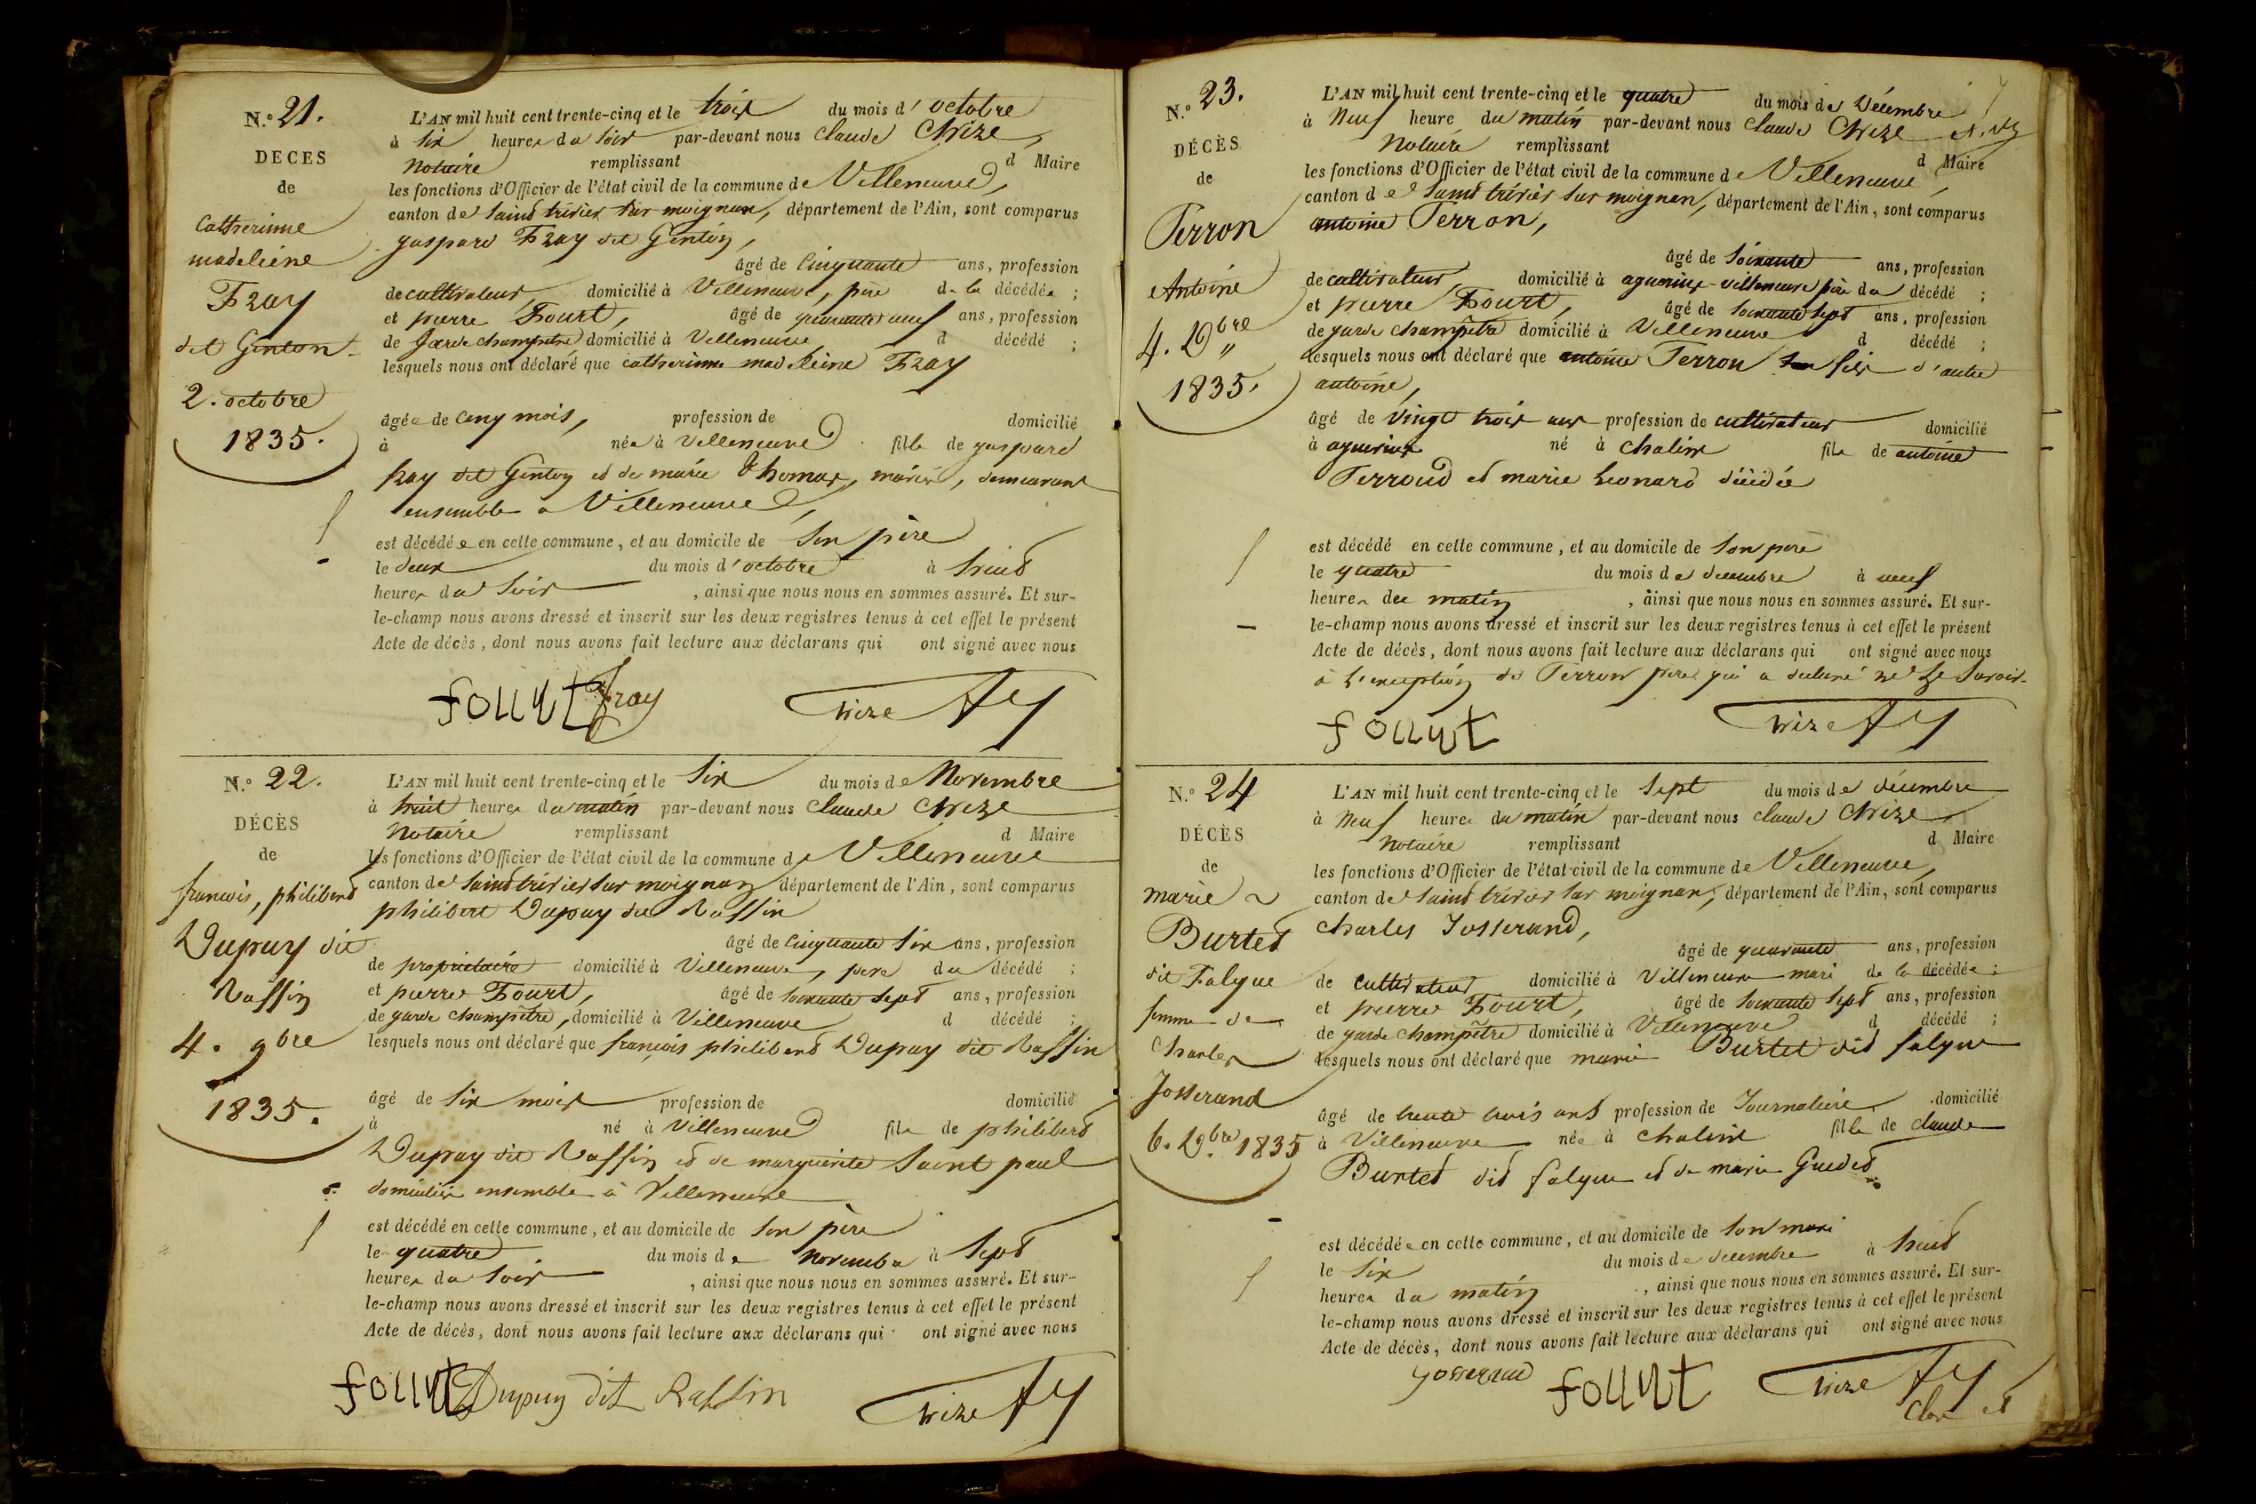 N.o 21.
DECES
de
Catherinne
madeleine
Fray
dit Genton
2. octobre
1835.
L'AN mil huit cent trente-cinq et le trois du mois d'octobre
à six heures du soir par-devant nous claude Chize,
Notaire remplissant d Maire
les fonctions d'Officier de l'état civil de la commune de Villeneuve,
canton de saint trivier sur moignan, département de l'Ain, sont comparus
gaspard Fray dit Genton,
âgé de Cinquante ans, profession
de cultivateur, domicilié à Villeneuve, père de la décédée ;
et pierre Fourt, âgé de ans, profession
de Garde champetre domicilié à Villeneuve d décédé ;
lesquels nous ont déclaré que catherinne madeleine Fray
âgée de cinq mois, profession de domicilié
à née à Villeneuve fille de gaspard
fray dit Genton et de marie Thomas, mariés, demeurant
ensemble a Villeneuve,
est décédée en cette commune, et au domicile de son père
le deux du mois d'octobre à huit
heures du soir , ainsi que nous nous en sommes assuré. Et sur-
le-champ nous avons dressé et inscrit sur les deux registres tenus à cet effet le présent
Acte de décès, dont nous avons fait lecture aux déclarans qui ont signé avec nous
fouurt fray Chize
N.o 22.
DÉCÈS
de
francois, philibert
Dupuy dit
Raffin
4. 9bre
1835.
L'AN mil huit cent trente-cinq et le six du mois de Novembre
à huit heures du matin par-devant nous claude Chize
Notaire remplissant d Maire
les fonctions d'Officier de l'état civil de la commune de Villeneuve
canton de saint trivier sur moignan département de l'Ain, sont comparus
philibert Dupuy dit Raffin
âgé de Cinquante six ans, profession
de propriétaire domicilié à Villeneuve, pere du décédé ;
et pierre Fourt, âgé de soixante sept ans, profession
de garde champetre, domicilié à Villeneuve d décédé ;
lesquels nous ont déclaré que françois philibert Dupuy dit Raffin
âgé de six mois profession de domicilié
à né à Villeneuve fils de philibert
Dupuy dit Raffin et de marguerite Saint paul
domiciliés ensemble à Villeneuve
est décédé en cette commune, et au domicile de son père
le quatre du mois de novembre à sept
heures du soir , ainsi que nous nous en sommes assuré. Et sur-
le-champ nous avons dressé et inscrit sur les deux registres tenus à cet effet le présent
Acte de décès, dont nous avons fait lecture aux déclarans qui ont signé avec nous
fouurt Dupuy dit Raffin Chize
N.o 23.
DÉCÈS
de
Terron
Antoine
4. Dbre
1835.
L'AN mil huit cent trente-cinq et le quatre du mois de Décembre
à Neuf heure du matin par-devant nous claude Chize
Notaire remplissant d Maire
les fonctions d'Officier de l'état civil de la commune de Villeneuve
canton de saint trivier sur moignan, département de l'Ain, sont comparus
antoine Terron,
âgé de soixante ans, profession
de cultivateur, domicilié à villeneuve père du décédé ;
et pierre Fourt, âgé de soixante sept ans, profession
de garde champêtre domicilié à Villeneuve d décédé ;
lesquels nous ont déclaré que antoine Terron fils d'autre
antoine,
âgé de vingt trois ans profession de cultivateur domicilié
à né à chalins fils de antoine
Terroud et marie Leonard décédée
est décédé en cette commune, et au domicile de son pere
le quatre du mois de decembre à neuf
heures du matin , ainsi que nous nous en sommes assuré. Et sur-
le-champ nous avons dressé et inscrit sur les deux registres tenus à cet effet le présent
Acte de décès, dont nous avons fait lecture aux déclarans qui ont signé avec nous
à l'exception de Terron pere qui a declaré ne le savoir.
fouurt Chize
N.o 24
DÉCÈS
de
marie
Burtet
dit Falque
femme de
Charles
Josserand
6. Dbre 1835
L'AN mil huit cent trente-cinq et le sept du mois de décembre
à Neuf heure du matin par-devant nous claude Chize
Notaire remplissant d Maire
les fonctions d'Officier de l'état civil de la commune de Villeneuve,
canton de saint trivier sur moignan, département de l'Ain, sont comparus
Charles Josserand,
âgé de quarante ans, profession
de cultivateur domicilié à Villeneuve mari de la décédée ;
et pierre Fourt, âgé de soixante sept ans, profession
de garde champêtre domicilié à Villeneuve d décédé ;
lesquels nous ont déclaré que marie Burtet dit falque
âgé de trente trois ans profession de Journaliere domicilié
à Villeneuve née à chalins fille de claude
Burtet dit falque et de marie Guedet
est décédée en cette commune, et au domicile de son mari
le six du mois de decembre à huit
heures du matin , ainsi que nous nous en sommes assuré. Et sur-
le-champ nous avons dressé et inscrit sur les deux registres tenus à cet effet le présent
Acte de décès, dont nous avons fait lecture aux déclarans qui ont signé avec nous
Josserand fouurt Chize